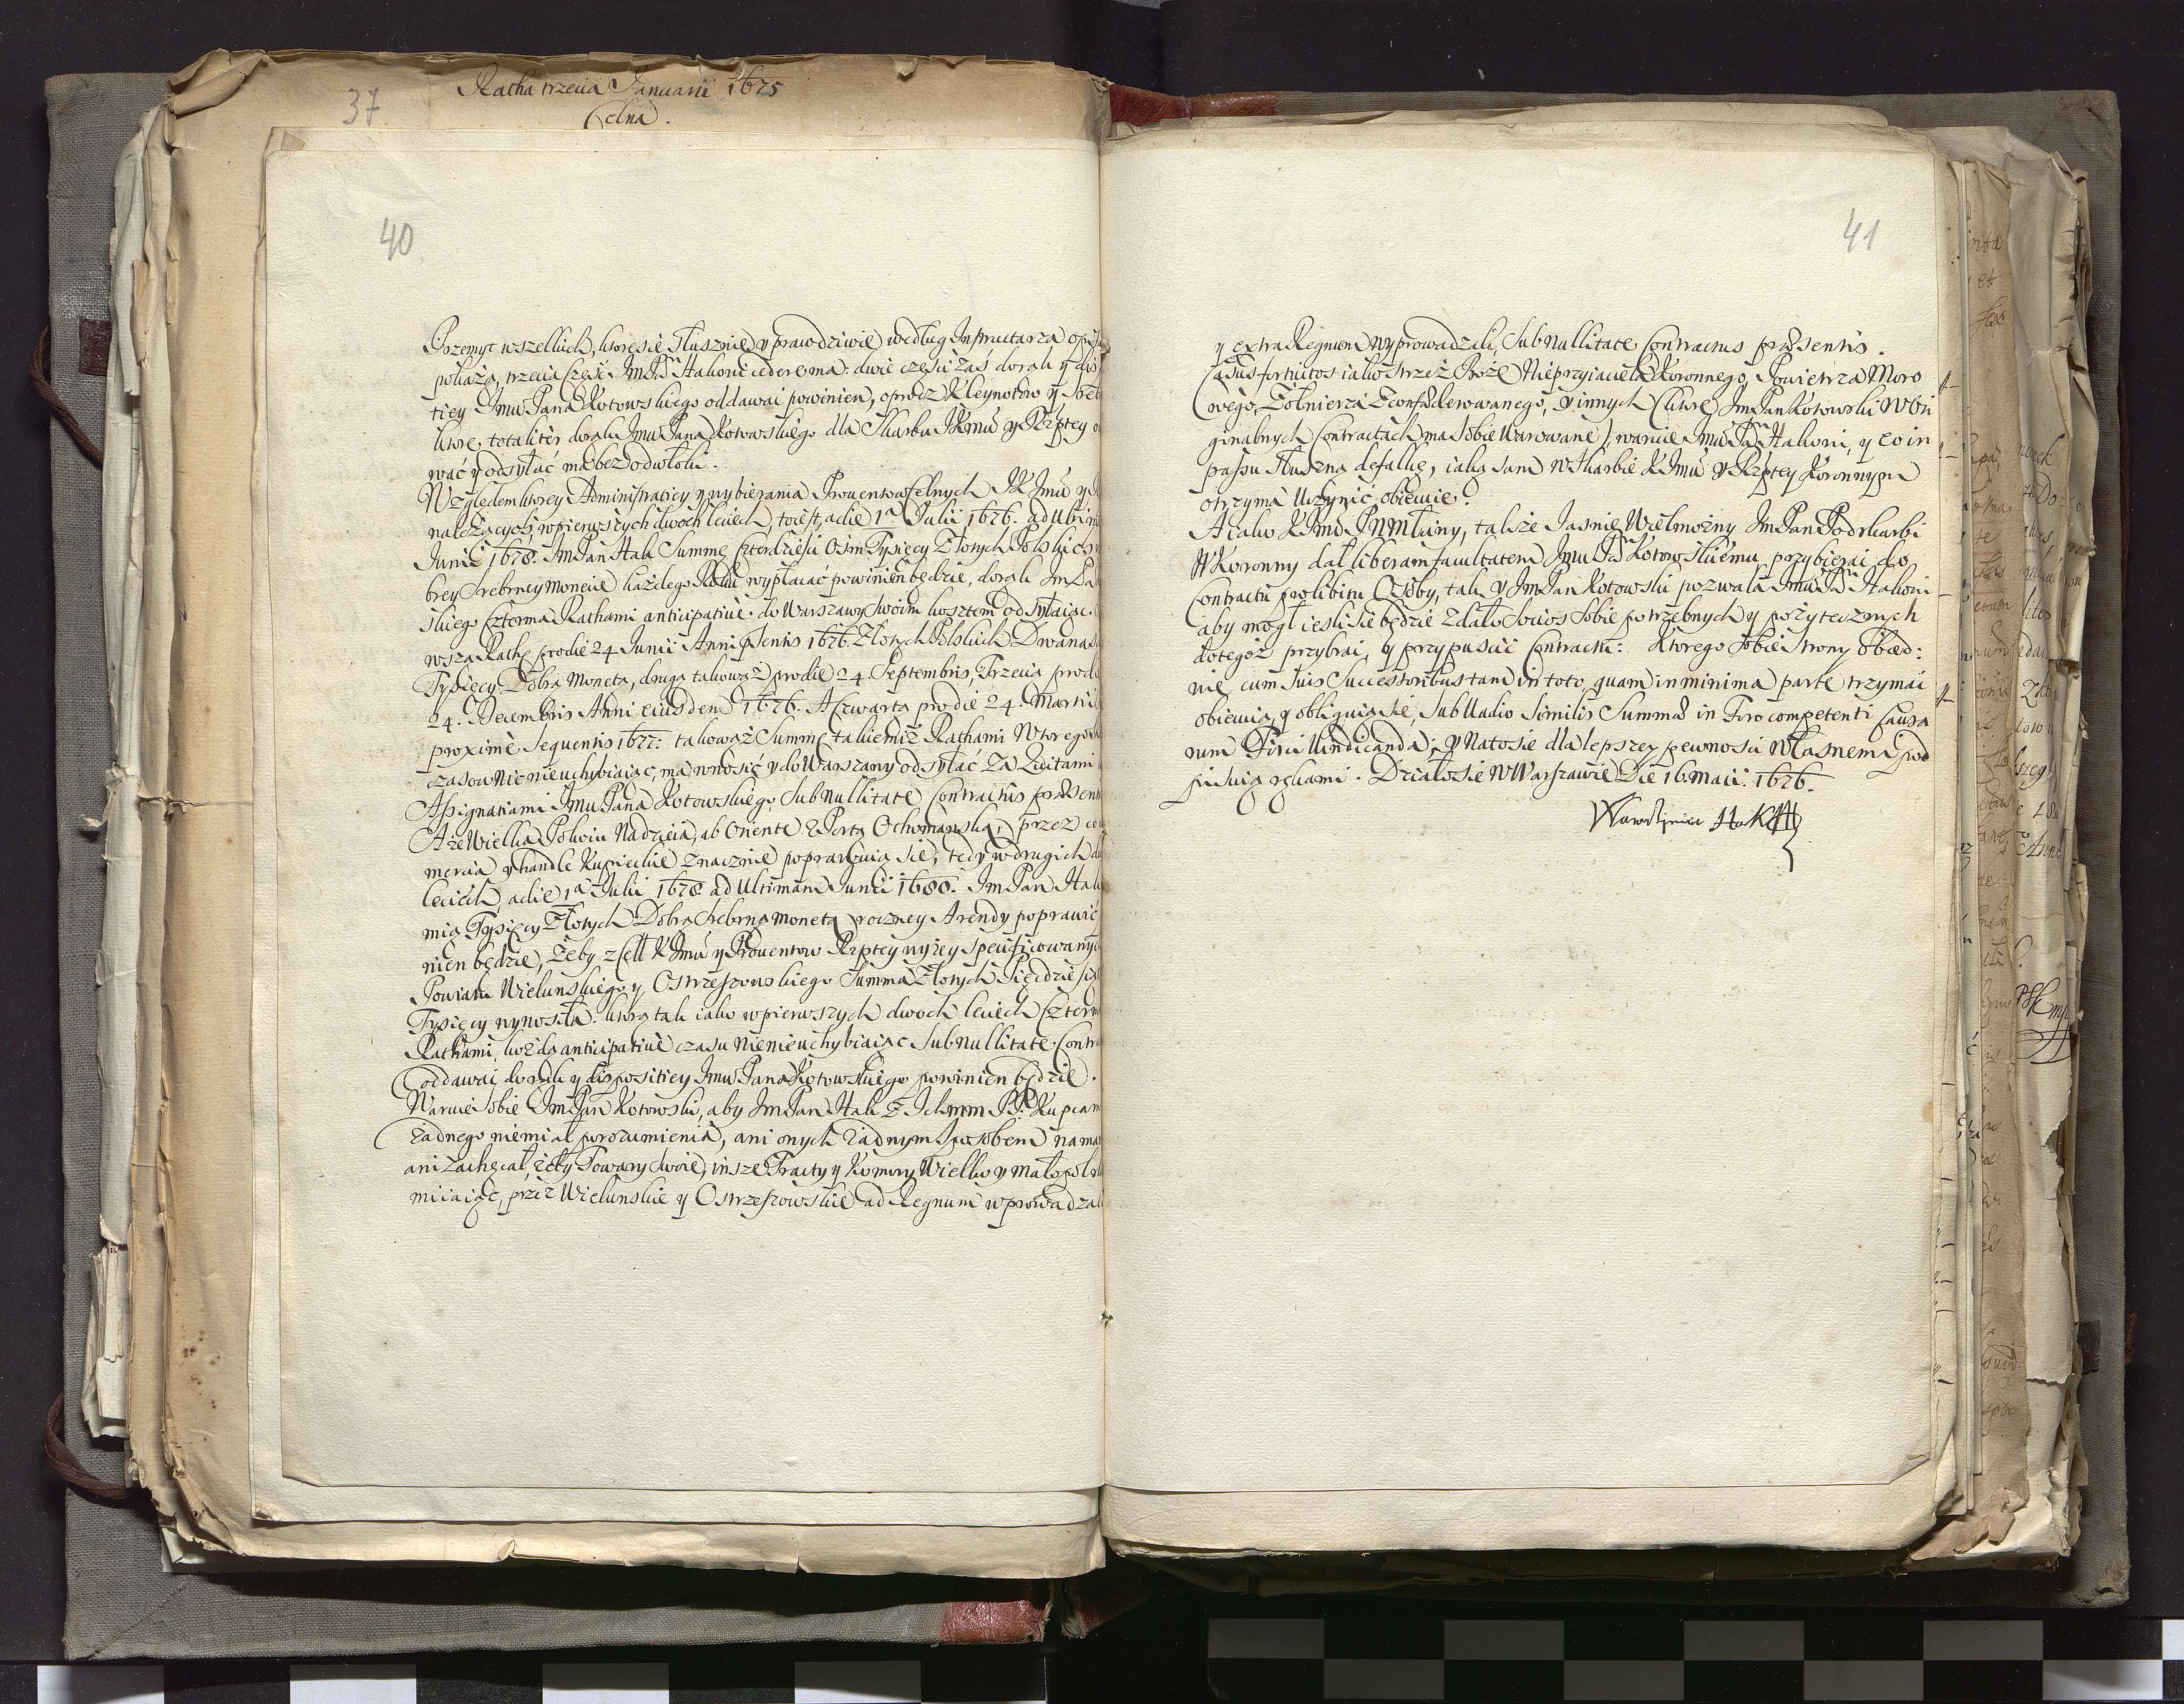 37
Ratha trzecia Januarii 1675
Celna.
40
Przemyt wszelkich, ktore się słusznie y prawdziwie według Instructarza
pokażą, trzecia część ImPn Hakowi cedere ma: dwie części zaś do rąk y
tiey Jmu Pana Kotowskiego oddawać powinien, oprocz Kleynotow y
ktore totaliter do rąk Jmu Pana Kotowskiego dla Skarbu JKMu y Rzptey
wać y odsyłać ma bez odwłoki.
Względem ktorey Administratiey y wybierania Prouentow Celnych JKJmu y
należących, w pierwszych dwoch leciech, to iest, a die 1a Julii 1676. ad Ultim
Junii 1678. ImPan Hak Summę Czterdzieści Ośm Tysięcy Złotych Polskich
brey Srebrney monecie każdego Roku wypłacać powinien będzie, do rąk Jm Pa
skiego Czterma Rathami anticipatiue do Warszawy swoim kosztem odsyłaiąc.
wsza Rathę pro die 24 Junii Anni psentis 1676. Złotych Polskich Dwanaś
Tysięcy Dobrą Monetą, druga takoważ pro die 24 Septembris, Trzecia pro d
24. Decembris Anni eiusdem 1676. A Czwarta pro die 24. Martii
proximè Sequentis 1677: takowąż Summę takiemiż Rathami Wtorego
czasow nic nie uchybiaiąc, ma wnosić y do Warszawy odsyłać Za Quitami
Assignatiami Jmu Pana Kotowskiego Sub nullitate Contractus præsent
A że Wielka Pokoiu Nadzieia, ab Oriente z Portą Ochomańską, przez co
mercia y handle Kupieckie znacznie poprawuią się, tedy w drugich d
leciech, a die 1a Julii 1678 ad Ultimam Junii 1680. ImPan Hak
mią Tysięcy Złotych Dobrą Srebrną monetą roczney Arendy poprawić
nien będzie, Żeby z Cełł KJmu y Prouentow Rzptey wyżey specificowanyc
Powiatu Wielunskiego y Ostrzeszowskiego Summa Złotych Pięcdziesią
Tysięcy wynosiła. ktorą tak iako w pierwszych dwoch leciech Czterm
Rathami, każdą anticipatiue czasu nie nie uchybiaiąc Sub nullitate Contr
oddawać do rąk y dispositiey Jmu Pana Kotowskiego powinien będzie.
Waruie sobie ImPan Kotowski, aby ImPan Hak z Ichmm PP. Kupcam
żadnego niemiał porozumienia, ani onych żadnym sposobem nama
ani zachęcał, żeby Towary swoie, insze Tracty y Komory Wielko y małopols
miiaiąc, przez Wielunskie y Ostrzeszowskie ad Regnum wprowadzal
41
y extra Regnum wyprowadzali, Sub Nullitate Contractus præsentis.
Casus fortuitos iako strzeż Boże Nieprzyiaciela Koronnego, Powietrza Moro
wego, Żołnierza Zconfœderowanego, y innych (ktore ImPan Kotowski W Ori
ginalnych Contractach ma sobie Warowane) waruie Jmu Pn Hakowi, y eo in
passu słuszną defalkę, iaką sam w Skarbie KJmu y Rzptey Koronnym
otrzyma Uczynić obiecuie.
A iako KJmc PNMłciwy, także Jasnie Wielmożny ImPan Podskarbi
W Koronny dał liberam facultatem Jmu Pn Kotowskiemu przybierać do
Contractu pro libitu Osoby, tak y ImPan Kotowski pozwala Jmu Pn Hakowi
aby mogł iesli się będzie zdało Socios sobie potrzebnych y pożytecznych
do tegoż przybrać, y przypuścić Contractu: Ktorego sobie strony obied:
nie cum suis Successoribus tam in toto quam in minima parte trzymać
obiecuią, y obliguią się, Sub Vadio Similis Summæ in Foro competenti Causa
rum Fisci Vindicanda: y Na to się dla lepszey pewności Własnemi pod
pisuią rękami. Działo się w Warszawie Die 16 Maii. 1676.
Wawrzyniec Hak